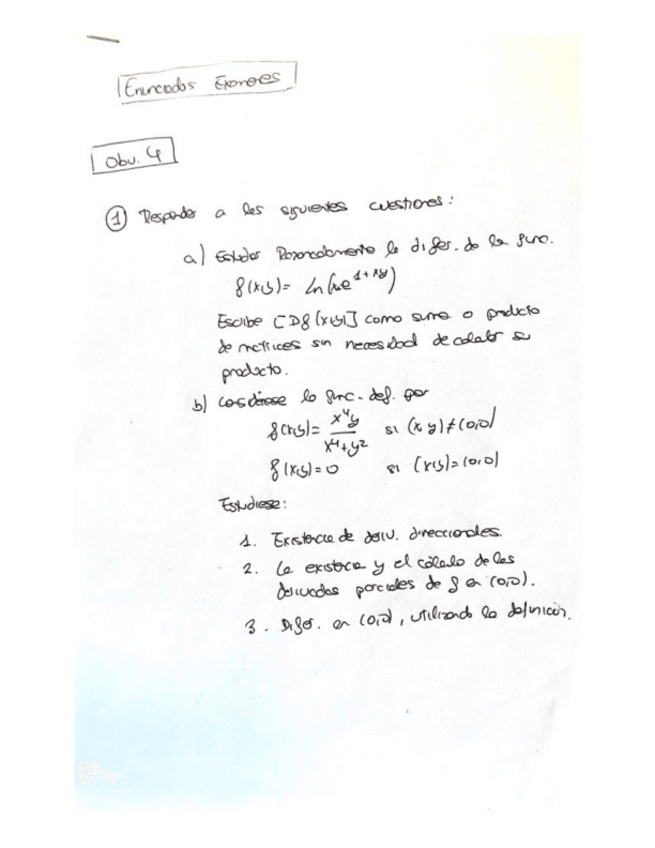 Enunciados Exámenes
Obv. 4
① Responder a las siguientes cuestiones:
a) Estudiar Razonadamente la difer. de la func.
f(x,y)= ln(xe^{1+xy})
Escribe [Df(x,y)] como suma o producto
de matrices sin necesidad de calcular su
producto.
b) Considérese la func. def. por
f(x,y)= x⁴y / x⁴+y² si (x,y)≠(0,0)
f(x,y)=0 si (x,y)=(0,0)
Estúdiese:
1. Existencia de deriv. direccionales.
2. La existencia y el cálculo de las
derivadas parciales de f en (0,0).
3. Difer. en (0,0), utilizando la definición.